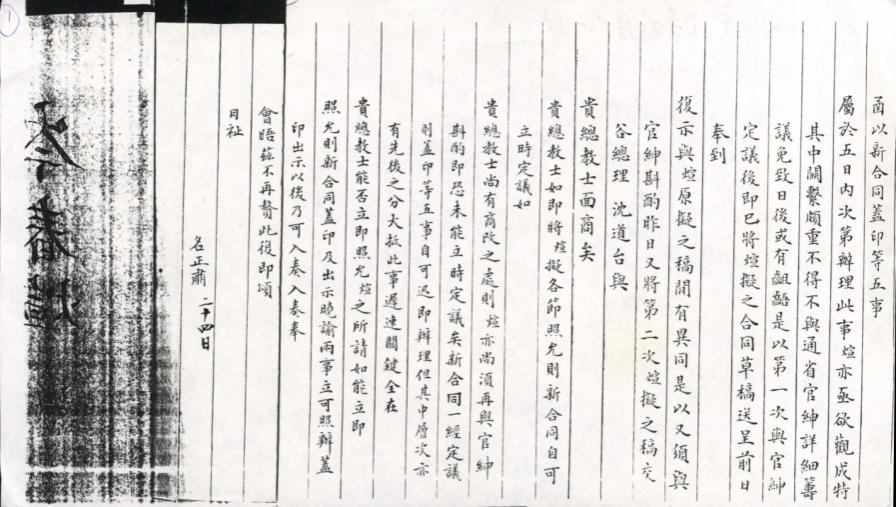 函以新合同蓋印等五事
屬於五日內次第辦理此事煊亦亟欲觀成特
其中關繫頗重不得不與通省官紳詳細籌
議免致日後或有齟齬是以第一次與官紳
定議後即已將煊擬之合同草稿送呈前日
奉到
復示與煊原擬之稿間有異同是以又須與
官紳斟酌昨日又將第二次煊擬之稿交
谷總理 沈道台與
貴總教士面商矣
貴總教士如即將煊擬各節照允則新合同自可
立時定議如
貴總教士尚有商改之處則煊亦尚須再與官紳
斟酌即恐未能立時定議矣新合同一經定議
則蓋印等五事自可迅即辦理但其中層次亦
有先後之分大抵此事遲速關鍵全在
貴總教士能否立即照允煊之所請如能立即
照允則新合同蓋印及出示曉諭兩事立可照辦蓋
印出示以後乃可入奏入奏奉
會晤茲不再贅此復即頌
日祉
名正肅 二十四日
岑春煊